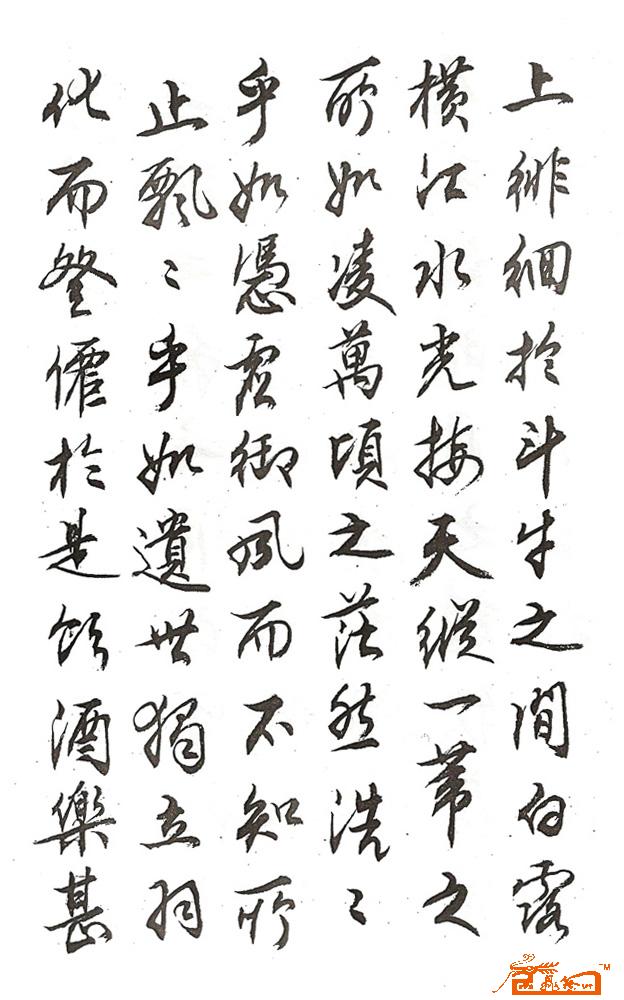 上徘徊於斗牛之間白露
橫江水光接天縱一葦之
所如凌萬頃之茫然浩〻
乎如憑虛御風而不知所
止飄〻乎如遺世獨立羽
化而登僊於是飲酒樂甚